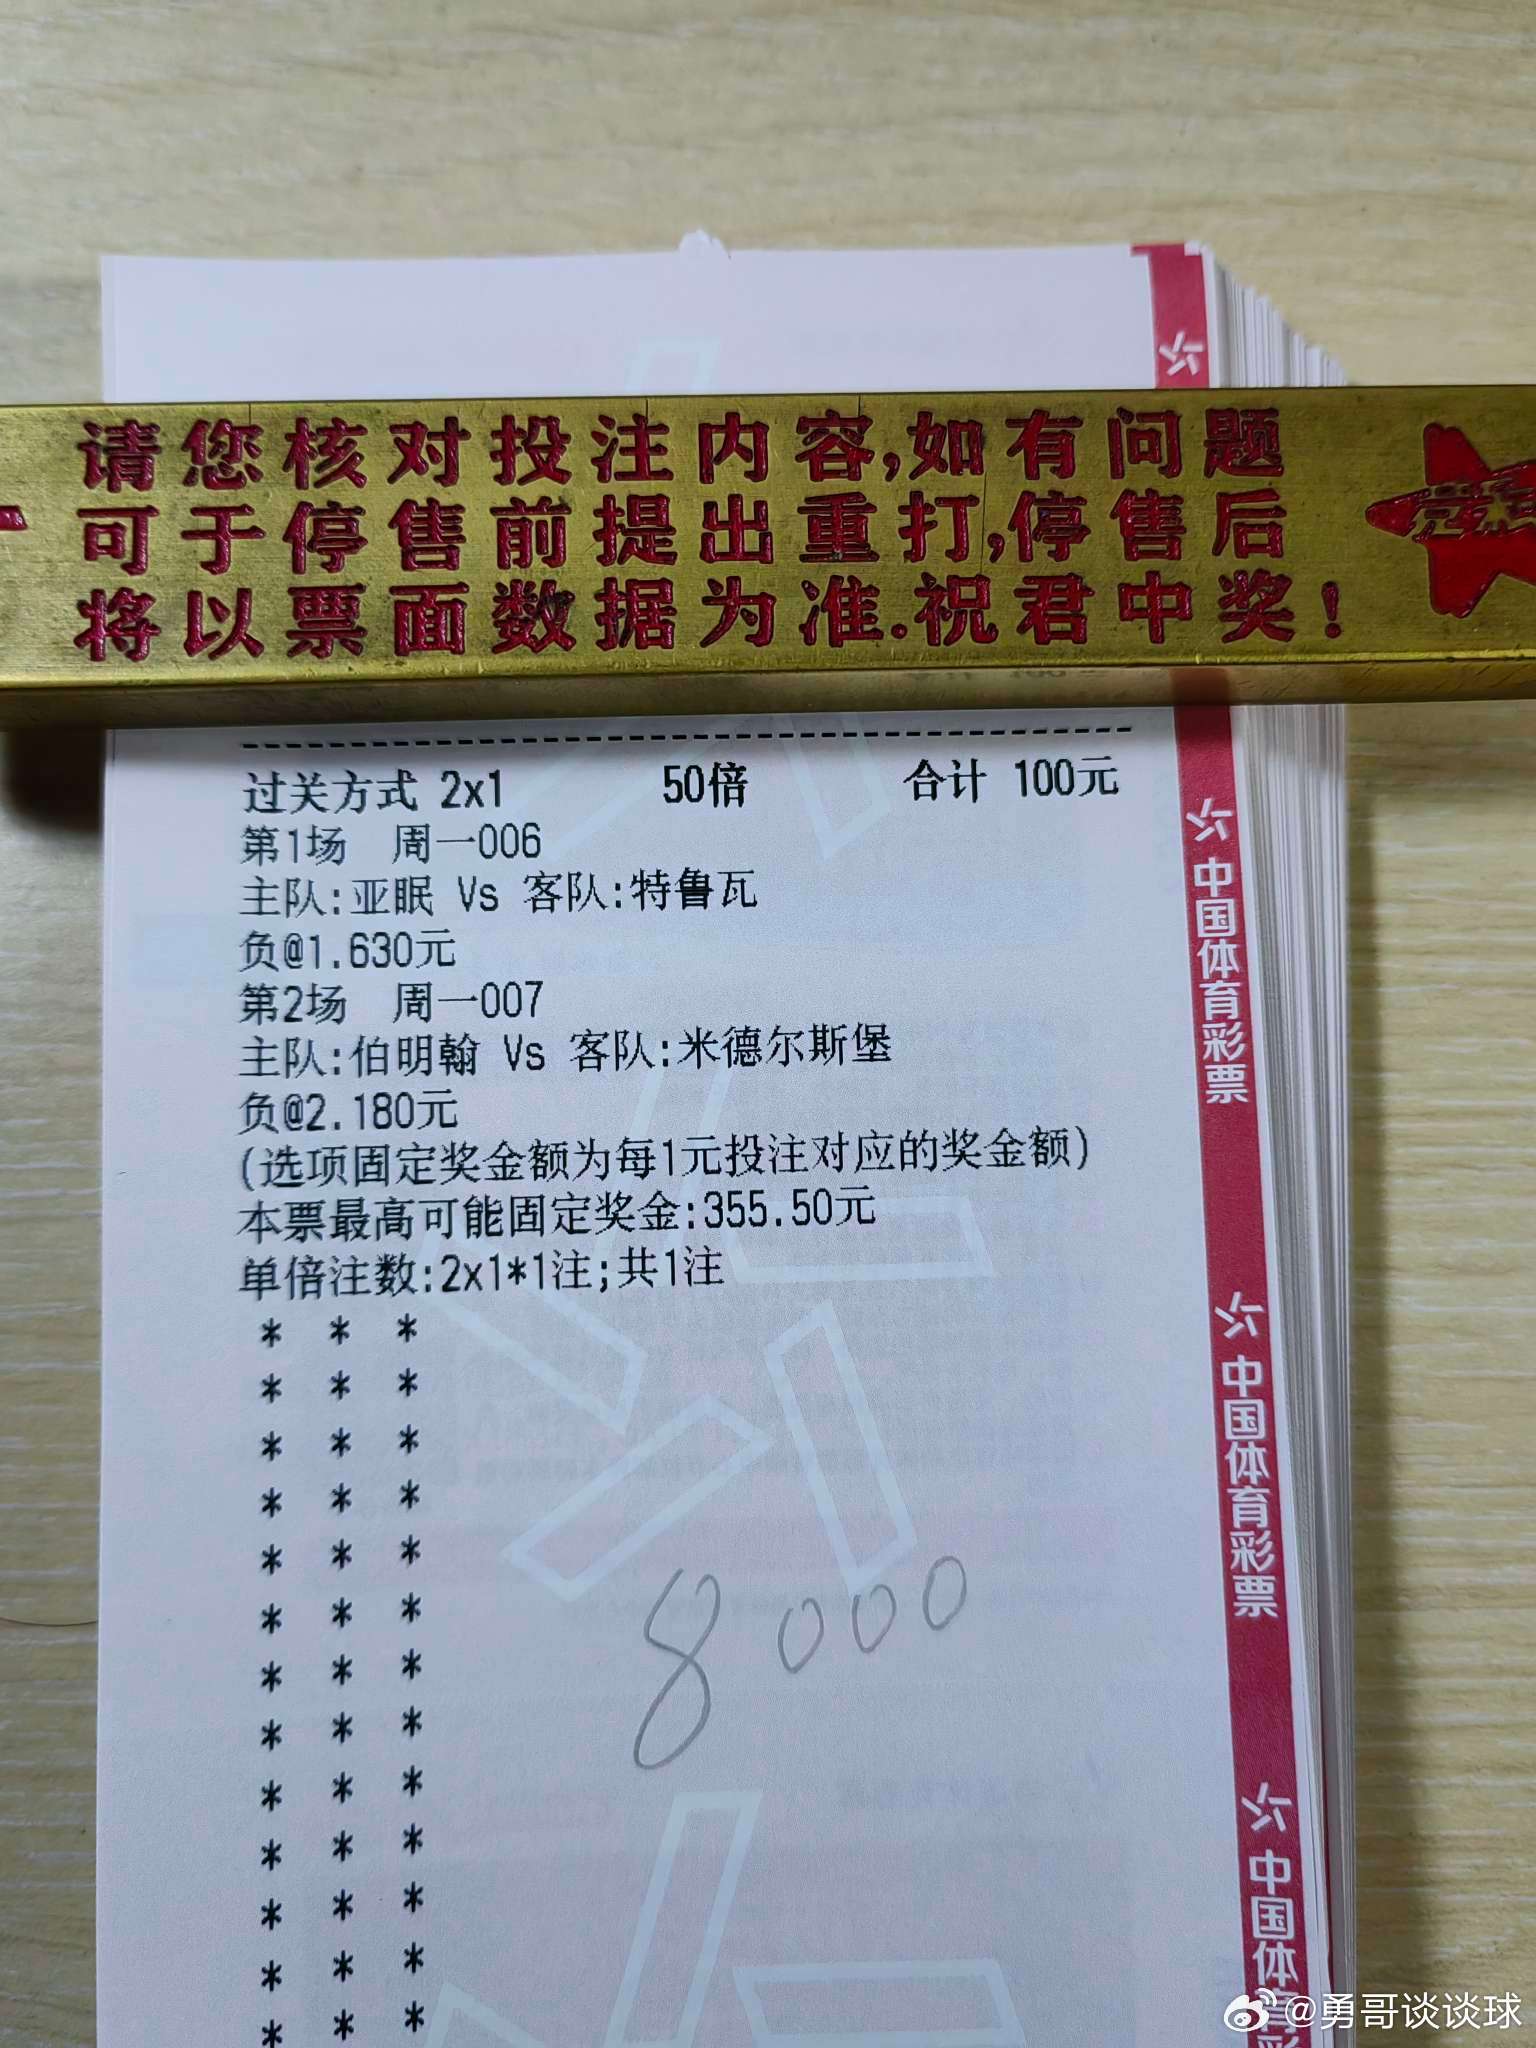 请您核对投注内容,如有问题
可于停售前提出重打,停售后
将以票面数据为准.祝君中奖!
过关方式 2x1 50倍 合计 100元
第1场 周一006
主队:亚眠 Vs 客队:特鲁瓦
负@1.630元
第2场 周一007
主队:伯明翰 Vs 客队:米德尔斯堡
负@2.180元
(选项固定奖金额为每1元投注对应的奖金额)
本票最高可能固定奖金:355.50元
单倍注数:2x1*1注;共1注
* * *
* * *
* * *
* * *
* * *
* * *
* * *
* * *
* * *
* * *
* * *
* * *
* * *
8000
中国体育彩票
中国体育彩票
中国体育彩
@勇哥谈谈球